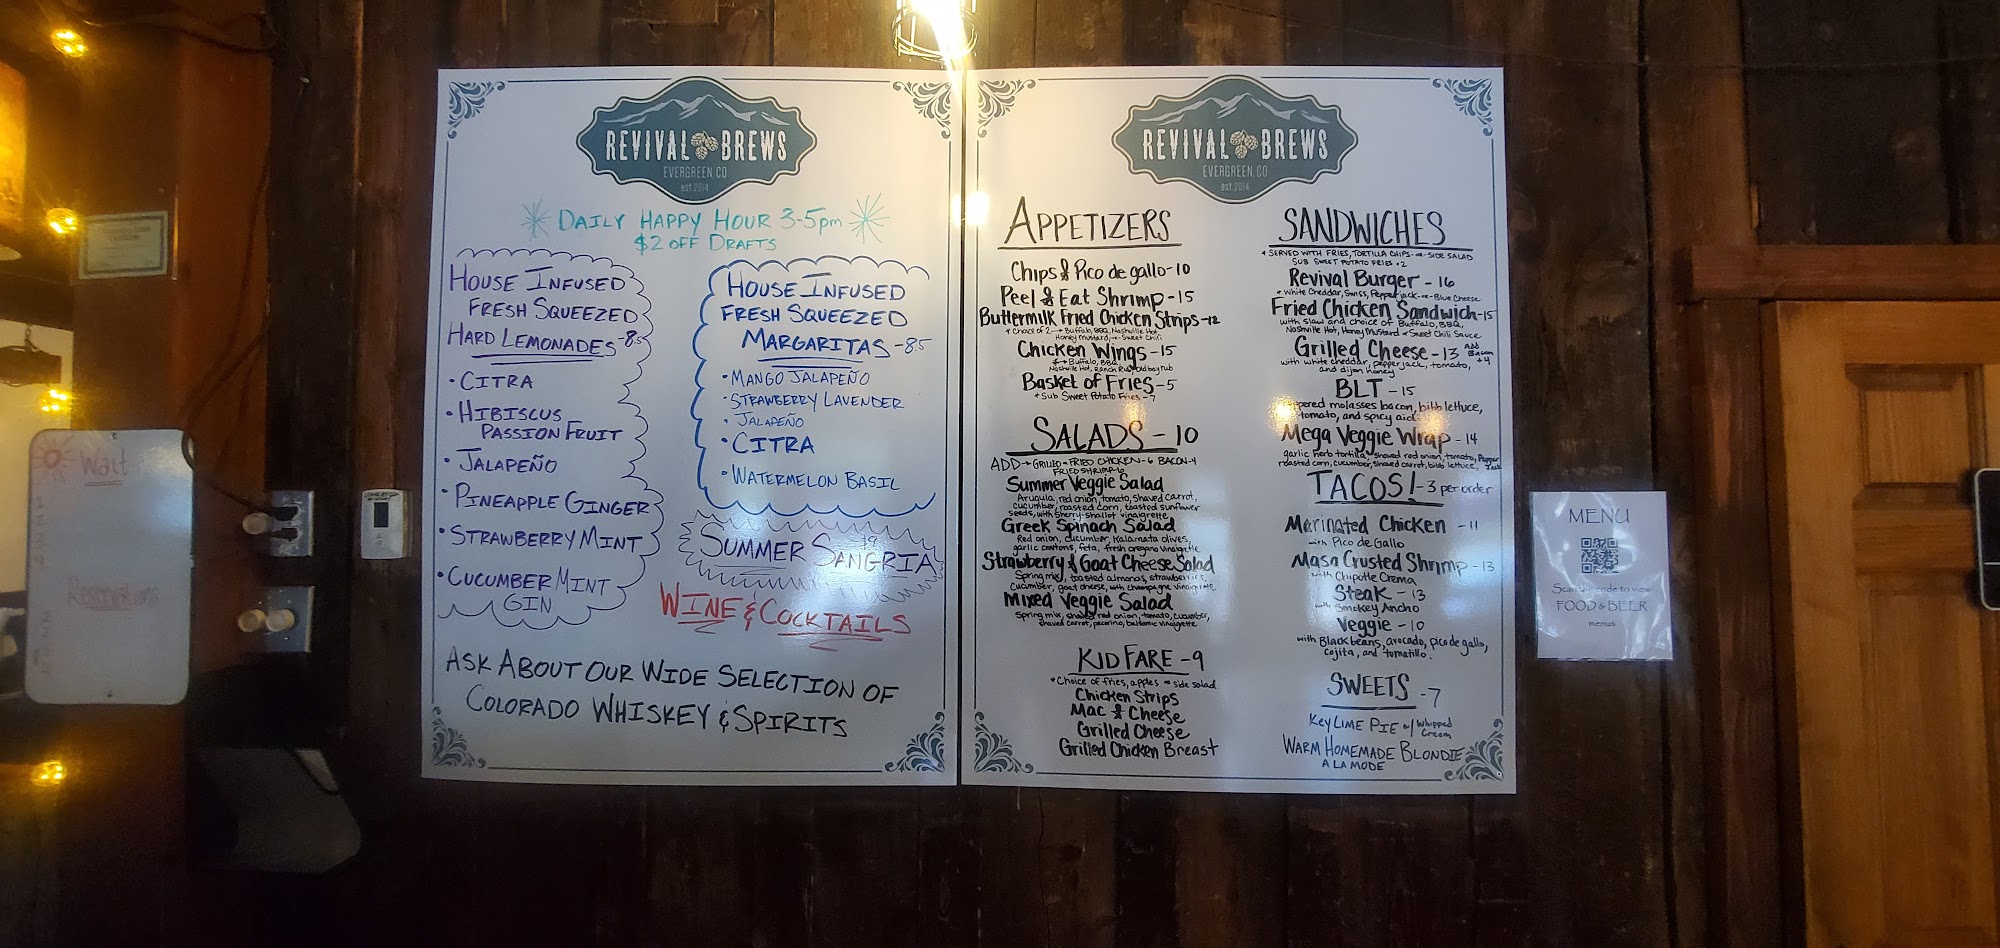 Wait
Reservations
REVIVAL BREWS
EVERGREEN, CO
est 2014
DAILY HAPPY HOUR 3-5pm
$2 OFF DRAFTS
HOUSE INFUSED
FRESH SQUEEZED
HARD LEMONADES -8.5
• CITRA
• HIBISCUS
PASSION FRUIT
• JALAPEÑO
• PINEAPPLE GINGER
• STRAWBERRY MINT
• CUCUMBER MINT
GIN
HOUSE INFUSED
FRESH SQUEEZED
MARGARITAS -8.5
• MANGO JALAPEÑO
• STRAWBERRY LAVENDER
• JALAPEÑO
• CITRA
• WATERMELON BASIL
SUMMER SANGRIA
WINE & COCKTAILS
ASK ABOUT OUR WIDE SELECTION OF
COLORADO WHISKEY & SPIRITS
REVIVAL BREWS
EVERGREEN, CO
est 2014
APPETIZERS
Chips & Pico de gallo - 10
Peel & Eat Shrimp - 15
Buttermilk Fried Chicken Strips - 12
* Choice of 2 → Buffalo, BBQ, Nashville Hot,
Honey Mustard, or Sweet Chili
Chicken Wings - 15
Buffalo, BBQ
Nashville Hot, Ranch Rub, old bay rub
Basket of Fries - 5
* Sub Sweet Potato Fries - 7
SALADS - 10
ADD → GRILLED or FRIED CHICKEN - 6 BACON - 4
FRIED SHRIMP - 6
Summer Veggie Salad
Arugula, red onion, tomato, shaved carrot,
cucumber, roasted corn, toasted sunflower
seeds, with Sherry-shallot vinaigrette
Greek Spinach Salad
Red onion, cucumber, Kalamata olives,
garlic croutons, feta, fresh oregano vinaigrette
Strawberry & Goat Cheese Salad
Spring mix, toasted almonds, strawberries,
cucumber, goat cheese, with champagne vinaigrette
Mixed Veggie Salad
Spring mix, shaved red onion, tomato, cucumber,
shaved carrot, pecorino, balsamic vinaigrette
KID FARE - 9
* Choice of fries, apples or side salad
Chicken Strips
Mac & Cheese
Grilled Cheese
Grilled Chicken Breast
SANDWICHES
* SERVED WITH FRIES, TORTILLA CHIPS or SIDE SALAD
SUB SWEET POTATO FRIES +2
Revival Burger - 16
* White Cheddar, Swiss, Pepperjack or Blue Cheese
Fried Chicken Sandwich - 15
with slaw and choice of Buffalo, BBQ,
Nashville Hot, Honey Mustard or Sweet Chili Sauce
Grilled Cheese - 13 Add Bacon +4
with white cheddar, pepperjack, tomato,
and dijon honey
BLT - 15
molasses bacon, bibb lettuce,
tomato, and spicy aioli
Mega Veggie Wrap - 14
garlic herb tortilla, shaved red onion, tomato, Pepper Jack
roasted corn, cucumber, shaved carrot, bibb lettuce,
TACOS! - 3 per order
Marinated Chicken - 11
with Pico de Gallo
Masa Crusted Shrimp - 13
with Chipotle Crema
Steak - 13
with Smokey Ancho
Veggie - 10
with Black beans, avocado, pico de gallo,
Cojita, and tomatillo.
SWEETS - 7
KEY LIME PIE w/ Whipped Cream
WARM HOMEMADE BLONDIE
A LA MODE
MENU
code to view
FOOD & BEER
menus